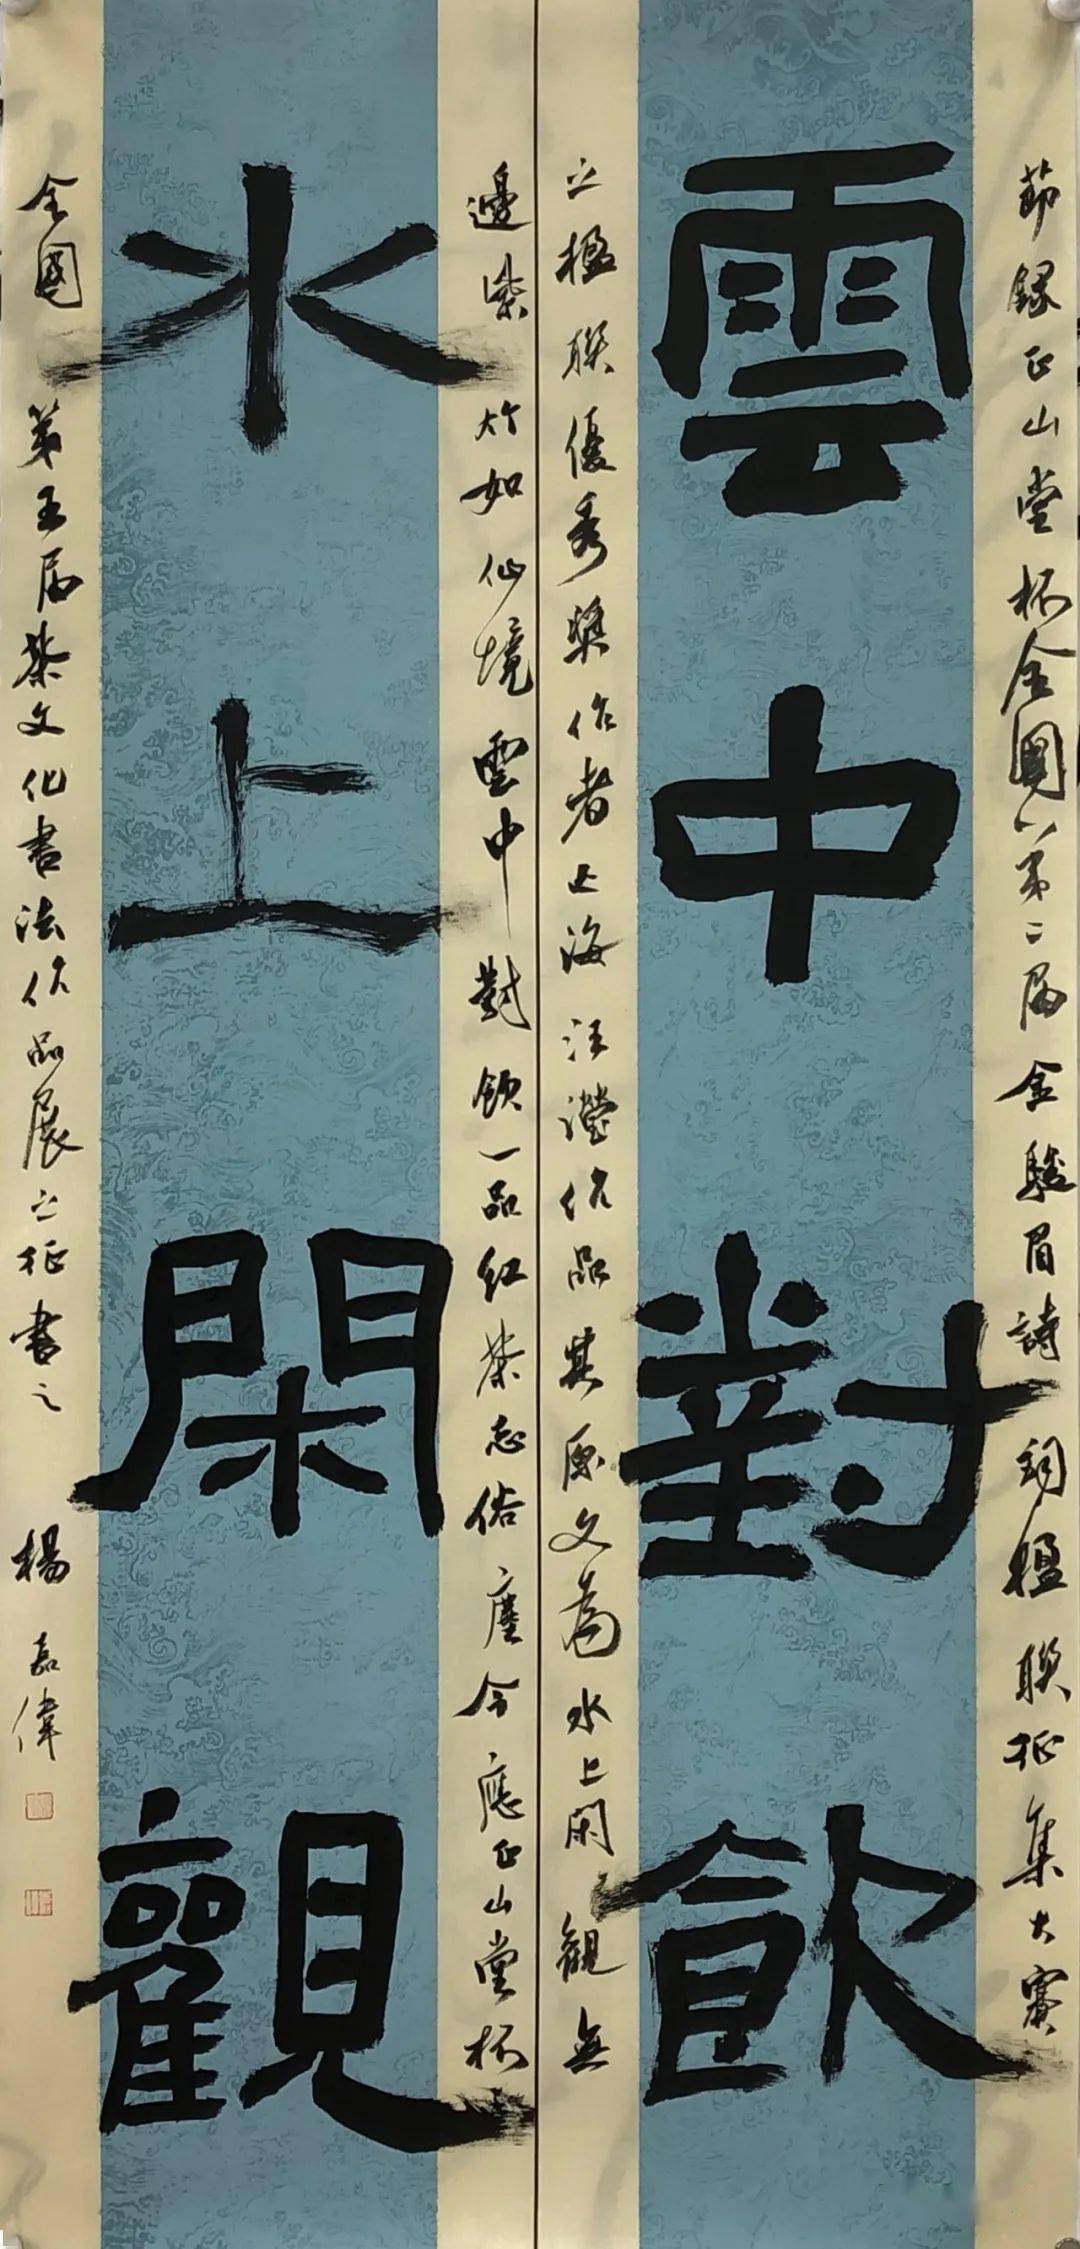 節録正山堂杯全國第二届金駿眉詩詞楹聯征集大賽
雲中對飲
之楹聯優秀獎作者上海汪瀅作品其原文為水上閑觀無
邊紫竹如仙境雲中對飲一品紅茶忘俗塵今應正山堂杯
水上閑觀
全國第五届茶文化書法作品展之征書之
楊嘉偉